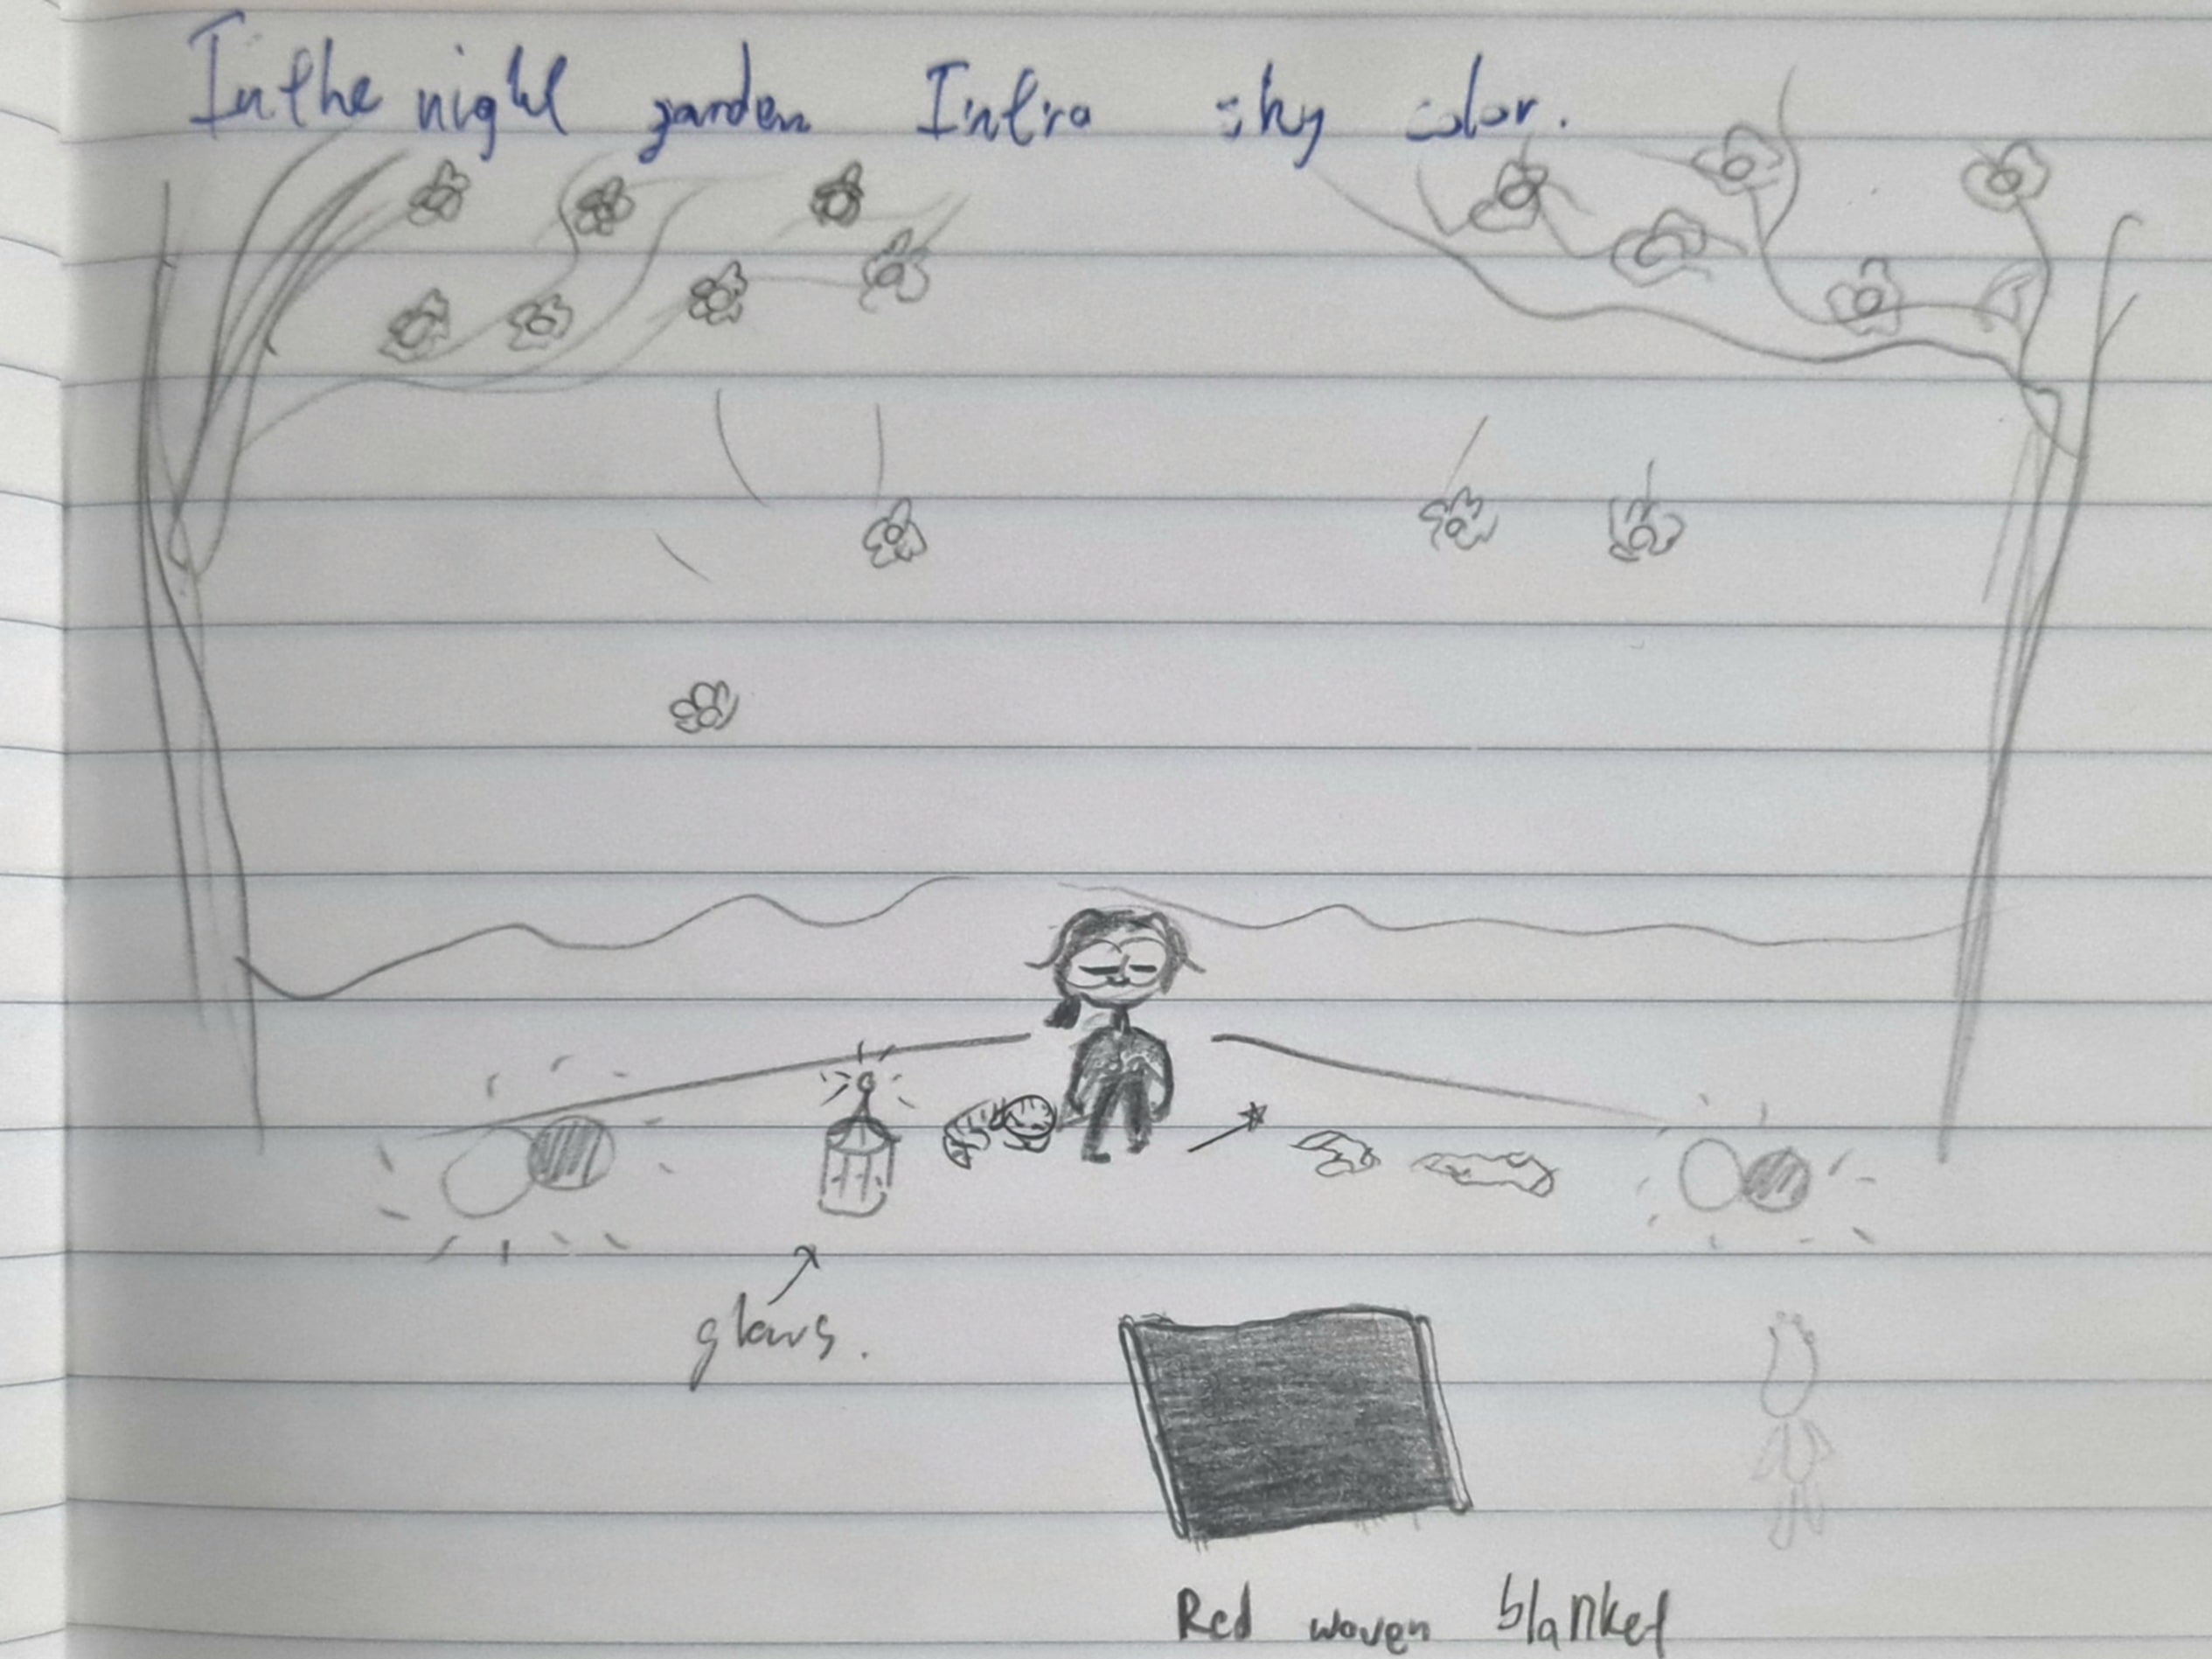 In the night garden Intro sky color.
glows.
Red woven blanket